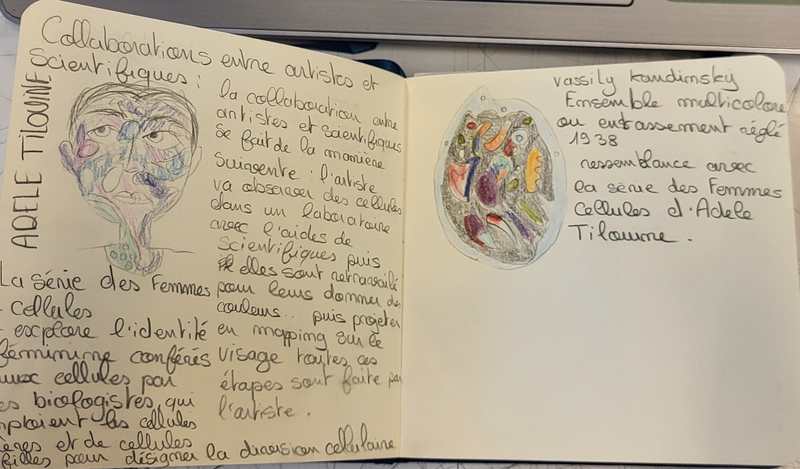 Collaborations entre artistes et
Scientifiques :
ADELE TILOUINE
la collaboration entre
artistes et scientifiques
se fait de la manière
suivante : l'artiste
va observer des cellules
dans un laboratoire
avec l'aides de
scientifiques puis
elles sont retravaillé
pour leurs donner des
couleurs.. puis projeter
en mapping sur le
visage toutes ces
étapes sont faite par
l'artiste.
La série des Femmes
- cellules
- explore l'identité
féminine conférés
aux cellules par
es biologistes, qui
mploient les cellules
ères et de cellules
filles pour désigner la division cellulaire
Vassily kandinsky
Ensemble multicolore
ou entassement réglé
1938
ressemblance avec
la série des Femmes
cellules d'Adele
Tilouine.